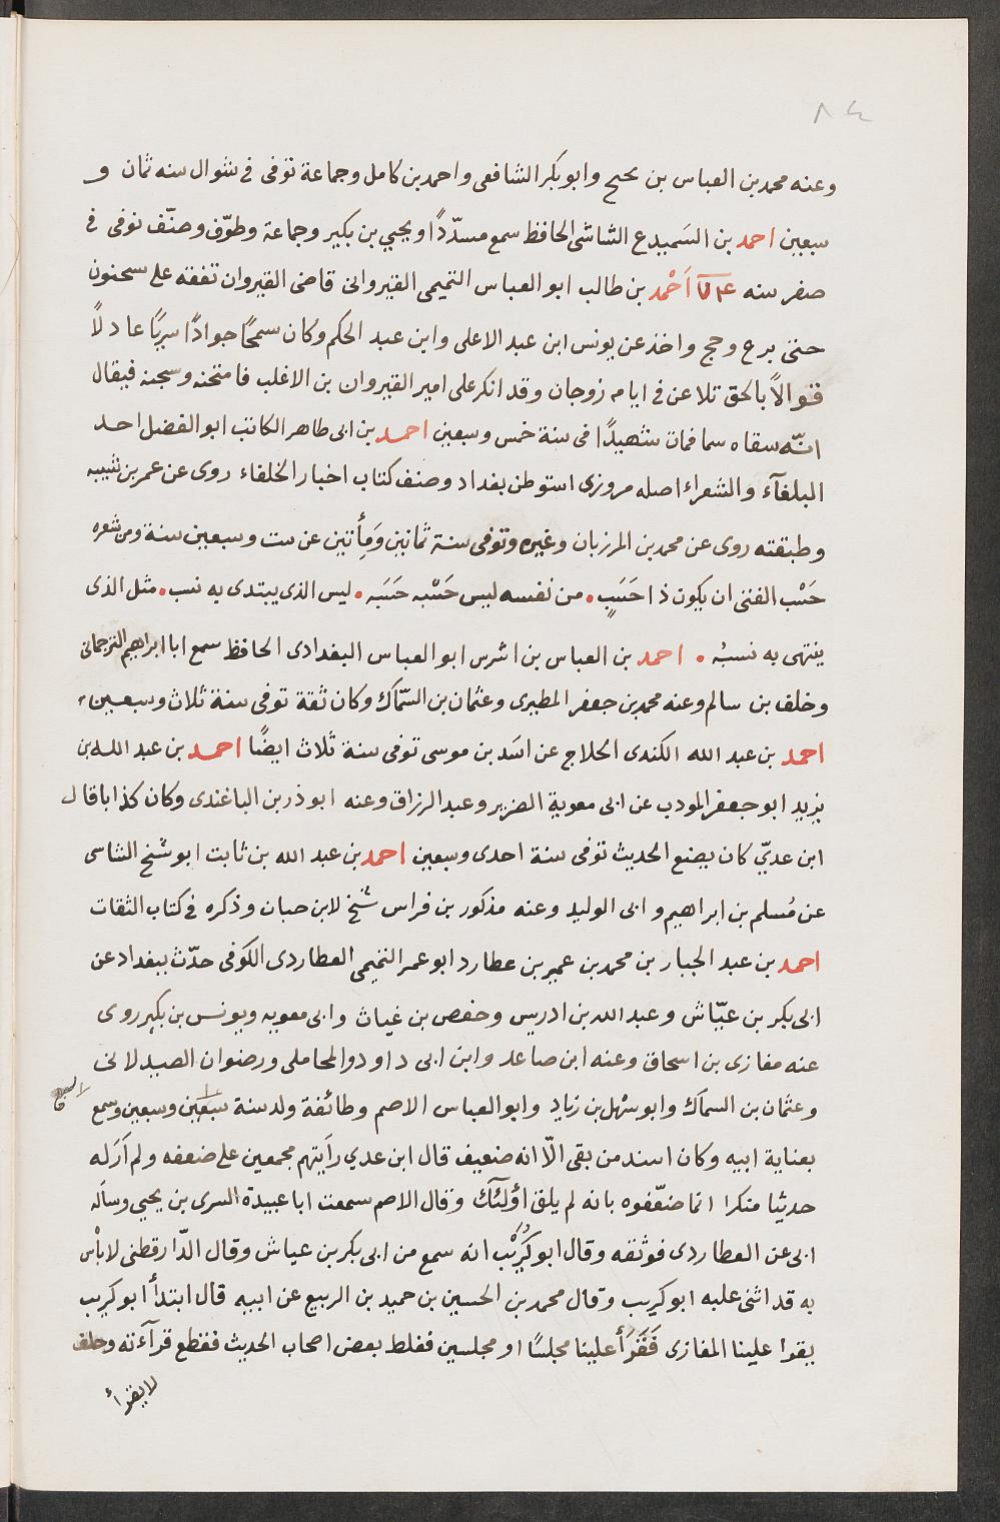 ٨٤
وعنه محمد بن العباس بن نجيح وابو بكر الشافعى واحمد بن كامل وجماعة توفى فى شوال سنه ثمان و
سبعين احمد بن السَميدع الشاشى الحافظ سمع مسدّدًا ويحيي بن بكير وجماعة وطوّف وصنّف توفى فى
صفر سنه اَحْمد بن طالب ابو العباس التميمى القيروانى قاضى القيروان تفقه على سحنون
حتى برع وحج واخذ عن يونس ابن عبد الاعلى وابن عبد الحكم وكان سمحًا جوادًا سريًا عادلاً
قتوالاً بالحق تلاعن فى ايامه زوجان وقد انكر على امير القيروان بن الاغلب فامتحنه وسجنه فيقال
انّه سقاه سما فمات شهيدًا فى سنة خمس وسبعين احمد بن ابى طاهر الكاتب ابو الفضل احد
البلغآء والشعراء اصله مروزى استوطن بغداد وصنف كتاب اخبار الخلفاء روى عن عمر بن شيبه
وطبقته روى عن محمد بن المرزبان وغيره وتوفى سنة ثمانين وَمِأتين عن ست وسبعين سنة ومن شعره
حَسْب الفتى ان يكون ذا حَسَبٍ . من نفسه ليس حَسْبه حَسَبَه . ليس الذى يبتدى به نسب . مثل الذى
ينتهى به نسبُه . احمد بن العباس بن اشرس ابو العباس البغدادى الحافظ سمع ابا ابراهيم الترجمانى
وخلف بن سالم وعنه محمد بن جعفر المطيرى وعثمان بن السّماك وكان ثقة توفى سنة ثلاث وسبعين
احمد بن عبد الله الكندى الحلاج عن اسَد بن موسى توفى سنة ثلاث ايضًا احمد بن عبد الله بن
يزيد ابو جعفر المودب عن ابى معوية الضرير وعبد الرزاق وعنه ابو ذر بن الباغندى وكان كذابا قال
ابن عديّ كان يضع الحديث توفى سنة احدى وسبعين احمد بن عبد الله بن ثابت ابو شيخ الشاسى
عن مُسلم بن ابراهيم وابى الوليد وعنه مذكور بن فراس شيخ لابن حبان وذكره فى كتاب الثقات
احمد بن عبد الجبار بن محمد بن عمير بن عطارد ابو عمر التميمى العطاردى الكوفى حدّث ببغداد عن
ابى بكر بن عيّاش وعبد الله بن ادريس وحفص بن غياث وابى معويه ويونس بن بكير روى
عنه مغازى بن اسحاق وعنه ابن صاعد وابن ابى داود والمحاملى ورضوان الصيدلانى
وعثمان بن السماك وابو سهل بن زياد وابو العباس الاصم وطائفة ولد سنة سبعين وسبعين وسمع
بعناية ابيه وكان اسند من بقى الّا انه ضعيف قال ابن عدي رأيتهم مجمعين على ضعفه ولم اَرَله
حديثا منكرا انما ضعّفوه بانه لم يلق اؤلئك وقال الاصم سمعت ابا عبيدة السرى بن يحيي وسأله
ابى عن العطاردى فوثقه وقال ابو كُرَيْب انه سمع من ابى بكر بن عياش وقال الدّارقطنى لا بأس
به قد اثنى عليه ابو كريب وقال محمد بن الحسين بن حميد بن الربيع عن ابيه قال ابتدأ ابو كريب
يقوا علينا المغازى فَقَرَأ علينا مجلسًا او مجلسين فغلط بعض اصحاب الحديث فقطع قرآءته وحلف
لا يقرأ